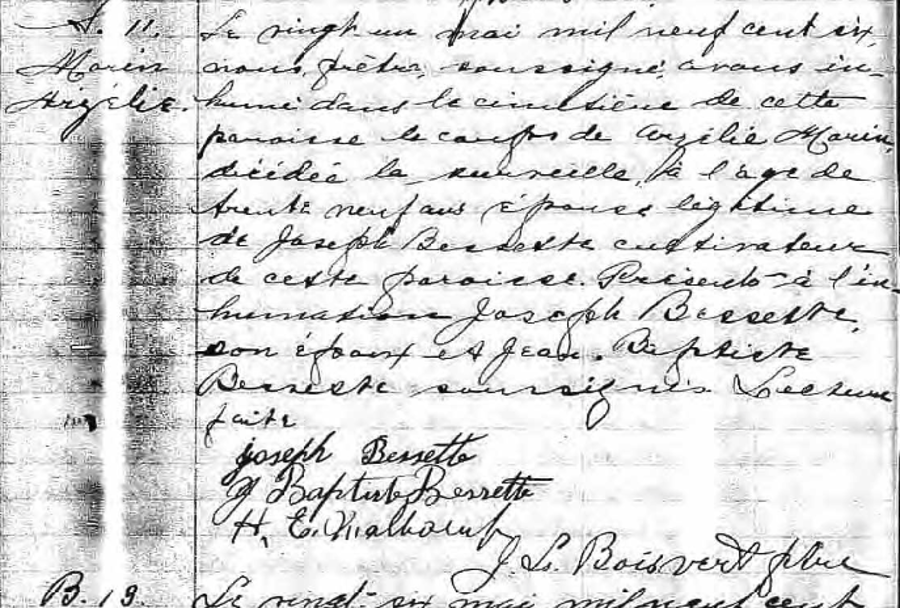 S. 11.
Morin
Arzélie.
Le vingt un mai mil neuf cent six,
nous, prêtre, soussigné, avons in-
humé dans le cimetière de cette
paroisse le corps de Arzélie Morin,
décédée la surveille, à l'age de
trente neuf ans épouse légitime
de Joseph Bessette cultivateur
de cette paroisse. Présents à l'in-
humation Joseph Bessette,
son époux et Jean-Baptiste
Bessette soussignés. Lecture
faite
Joseph Bessette
J Baptiste Bessette
H, E.
J. L. Boisvert ptre
B. 13.
Le vingt-six mai mil neuf cent